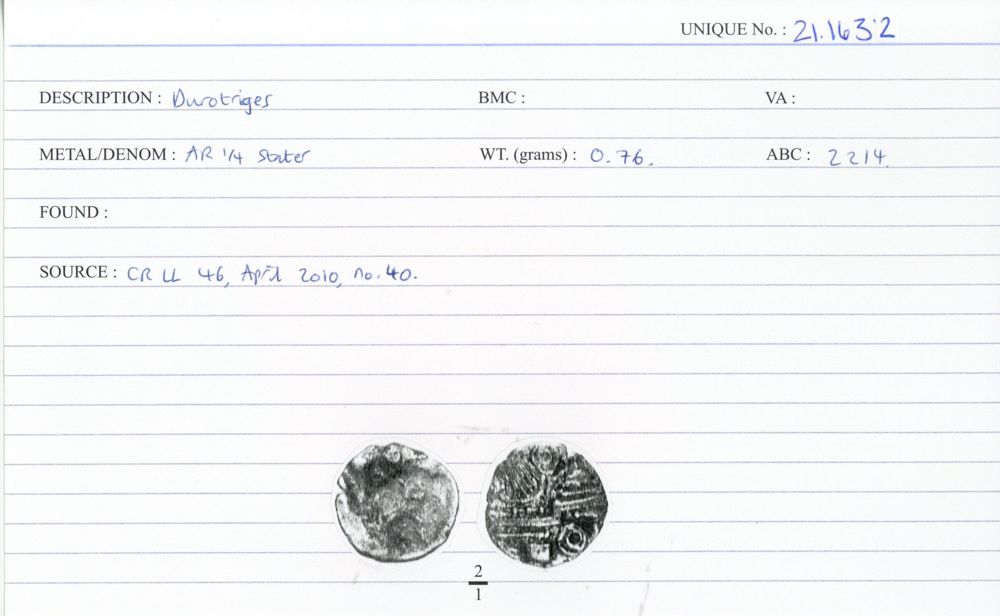 UNIQUE No. : 21.1632
DESCRIPTION : Durotriges BMC : VA :
METAL/DENOM : AR 1/4 stater WT. (grams) : 0.76. ABC : 2214.
FOUND :
SOURCE : CR LL 46, April 2010, no. 40.
2
1